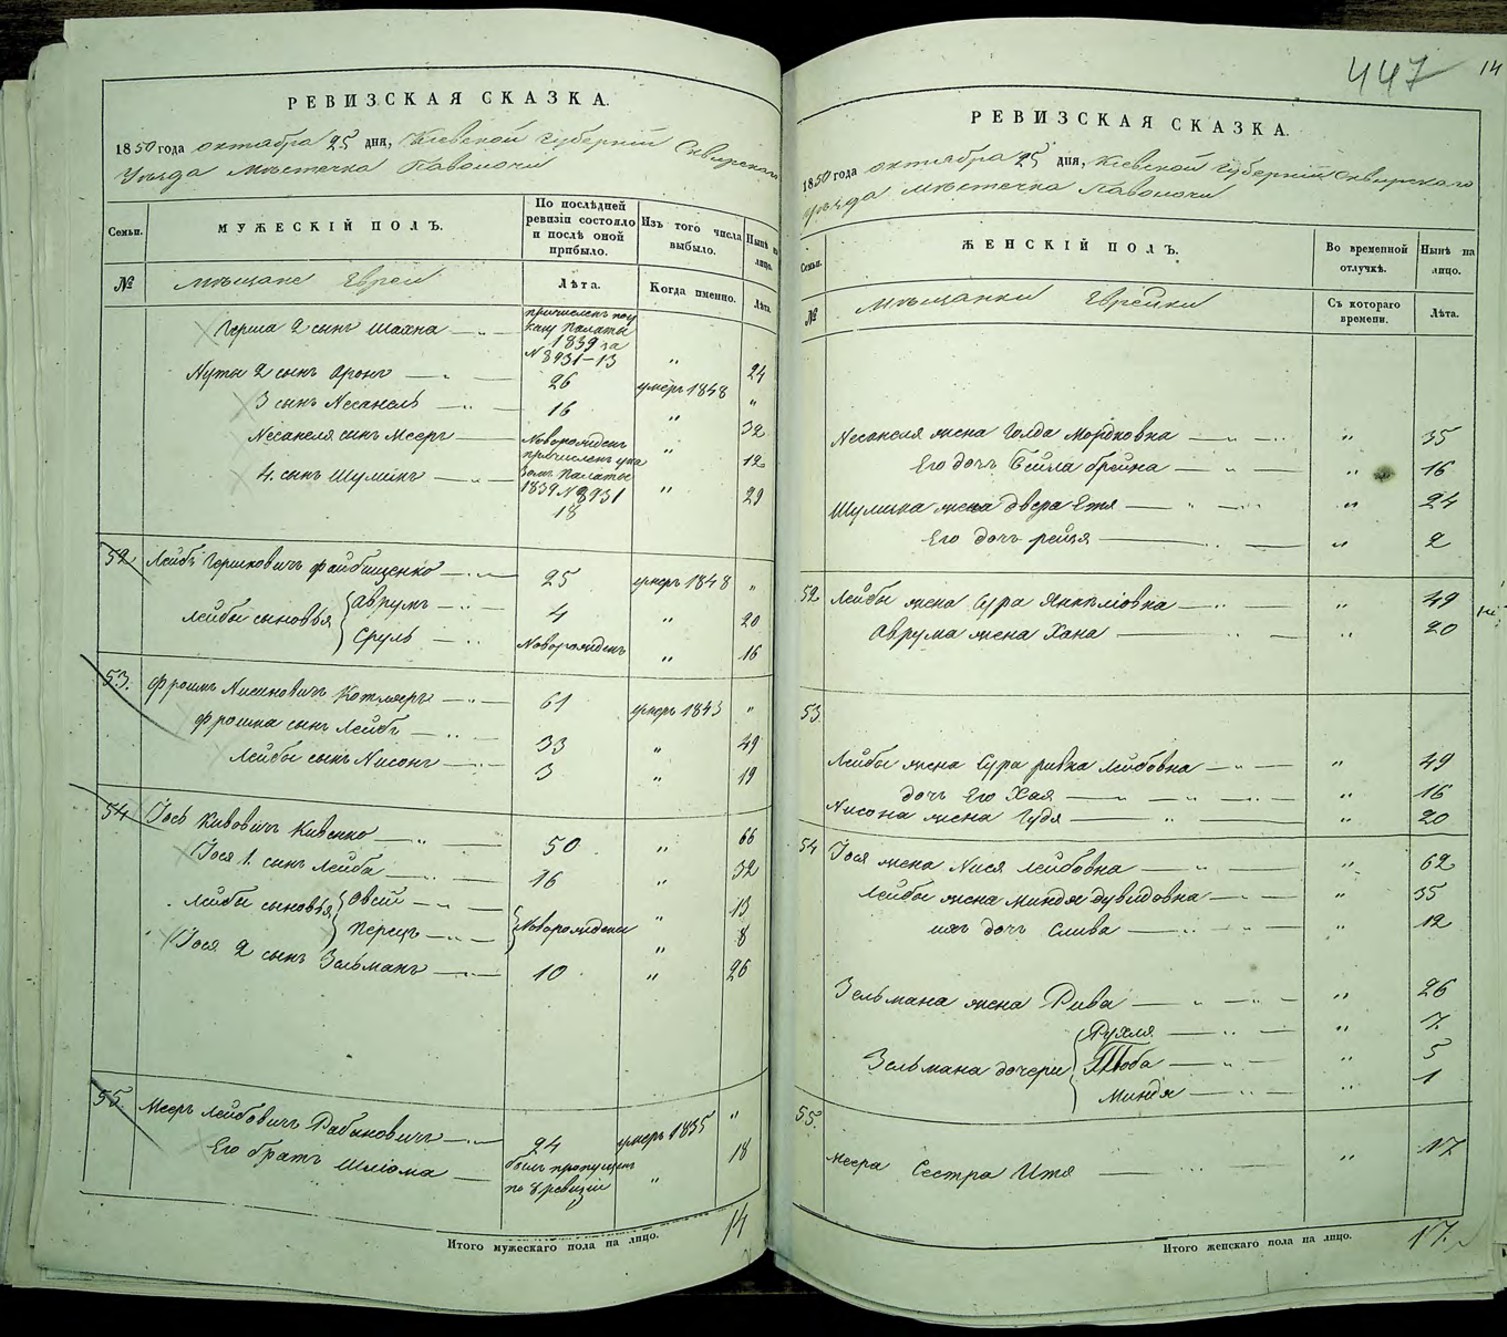 РЕВИЗСКАЯ СКАЗКА.
1850 года октября 25 дня, Кіевской Губерніи Сквирскаго
Уѣзда Мѣстечка Паволочи
Семьи.
МУЖЕСКІЙ ПОЛЪ.
По послѣдней ревизіи состояло и послѣ оной прибыло.
Изъ того числа выбыло.
Нынѣ на лицо.
№
Мѣщане Евреи
Лѣта.
Когда именно.
Лѣта.
Герша 2 сынъ Шахна — причисленъ по ук. Каз Палаты 1839 за № 8931 — 13 " 24
Нуты 2 сынъ Аронъ — 26 умеръ 1848 "
3 сынъ Несанель — 16 " 32
Несанеля сынъ Мееръ — Новорожденъ " 12
4. сынъ Шулимъ — причисленъ ука зомъ Палаты 1839 № 8931 18 " 29
52 Лейбъ Гершковичъ Файбищенко — 25 умеръ 1848 "
Лейбы сыновья { Аврумъ — 4 " 20
Сруль — Новорожденъ " 16
53. Фроимъ Нисиновичъ Котляръ — 61 умеръ 1843 "
Фроима сынъ Лейбъ — 33 " 49
Лейбы сынъ Нисонъ — 3 " 19
54 Іось Кивовичъ Кивенко — 50 " 66
Іося 1. сынъ Лейба — 16 " 32
Лейбы сыновья { Овсій — } Новорождены " 13
Перецъ — " 8
Іося 2 сынъ Зельманъ — 10 " 26
55. Мееръ Лейбовичъ Рабиновичъ — 24 умеръ 1835 "
Его братъ Шліома — былъ пропущенъ по 8 ревизіи " 18
Итого мужескаго пола на лицо. 14
447
14
РЕВИЗСКАЯ СКАЗКА.
1850 года октября 25 дня, Кіевской Губерніи Сквирскаго
Уѣзда Мѣстечка Паволочи
Семьи.
ЖЕНСКІЙ ПОЛЪ.
Во временной отлучкѣ.
Нынѣ на лицо.
№
Мѣщанки Еврейки
Съ котораго времени.
Лѣта.
Несанеля жена Голда Мордковна — " 35
Его дочь Бейла Брейна — " 16
Шулима жена Двера Етя — " 24
Его дочь Рейзя — " 2
52 Лейбы жена Сура Янкеліовна — " 49
Аврума жена Хана — " 20
53
Лейбы жена Сура Ривка Лейбовна — " 49
дочь Его Хая — " 16
Нисона жена Гудя — " 20
54 Іося жена Нися Лейбовна — " 62
Лейбы жена Миндя Дувидовна — " 35
ихъ дочь Слива — " 12
Зельмана жена Рива — " 26
Зельмана дочери { Рухля — " 7.
Тоба — " 5
Миндя — " 1
55.
Меера Сестра Итя — " 17
Итого женскаго пола на лицо. 17.